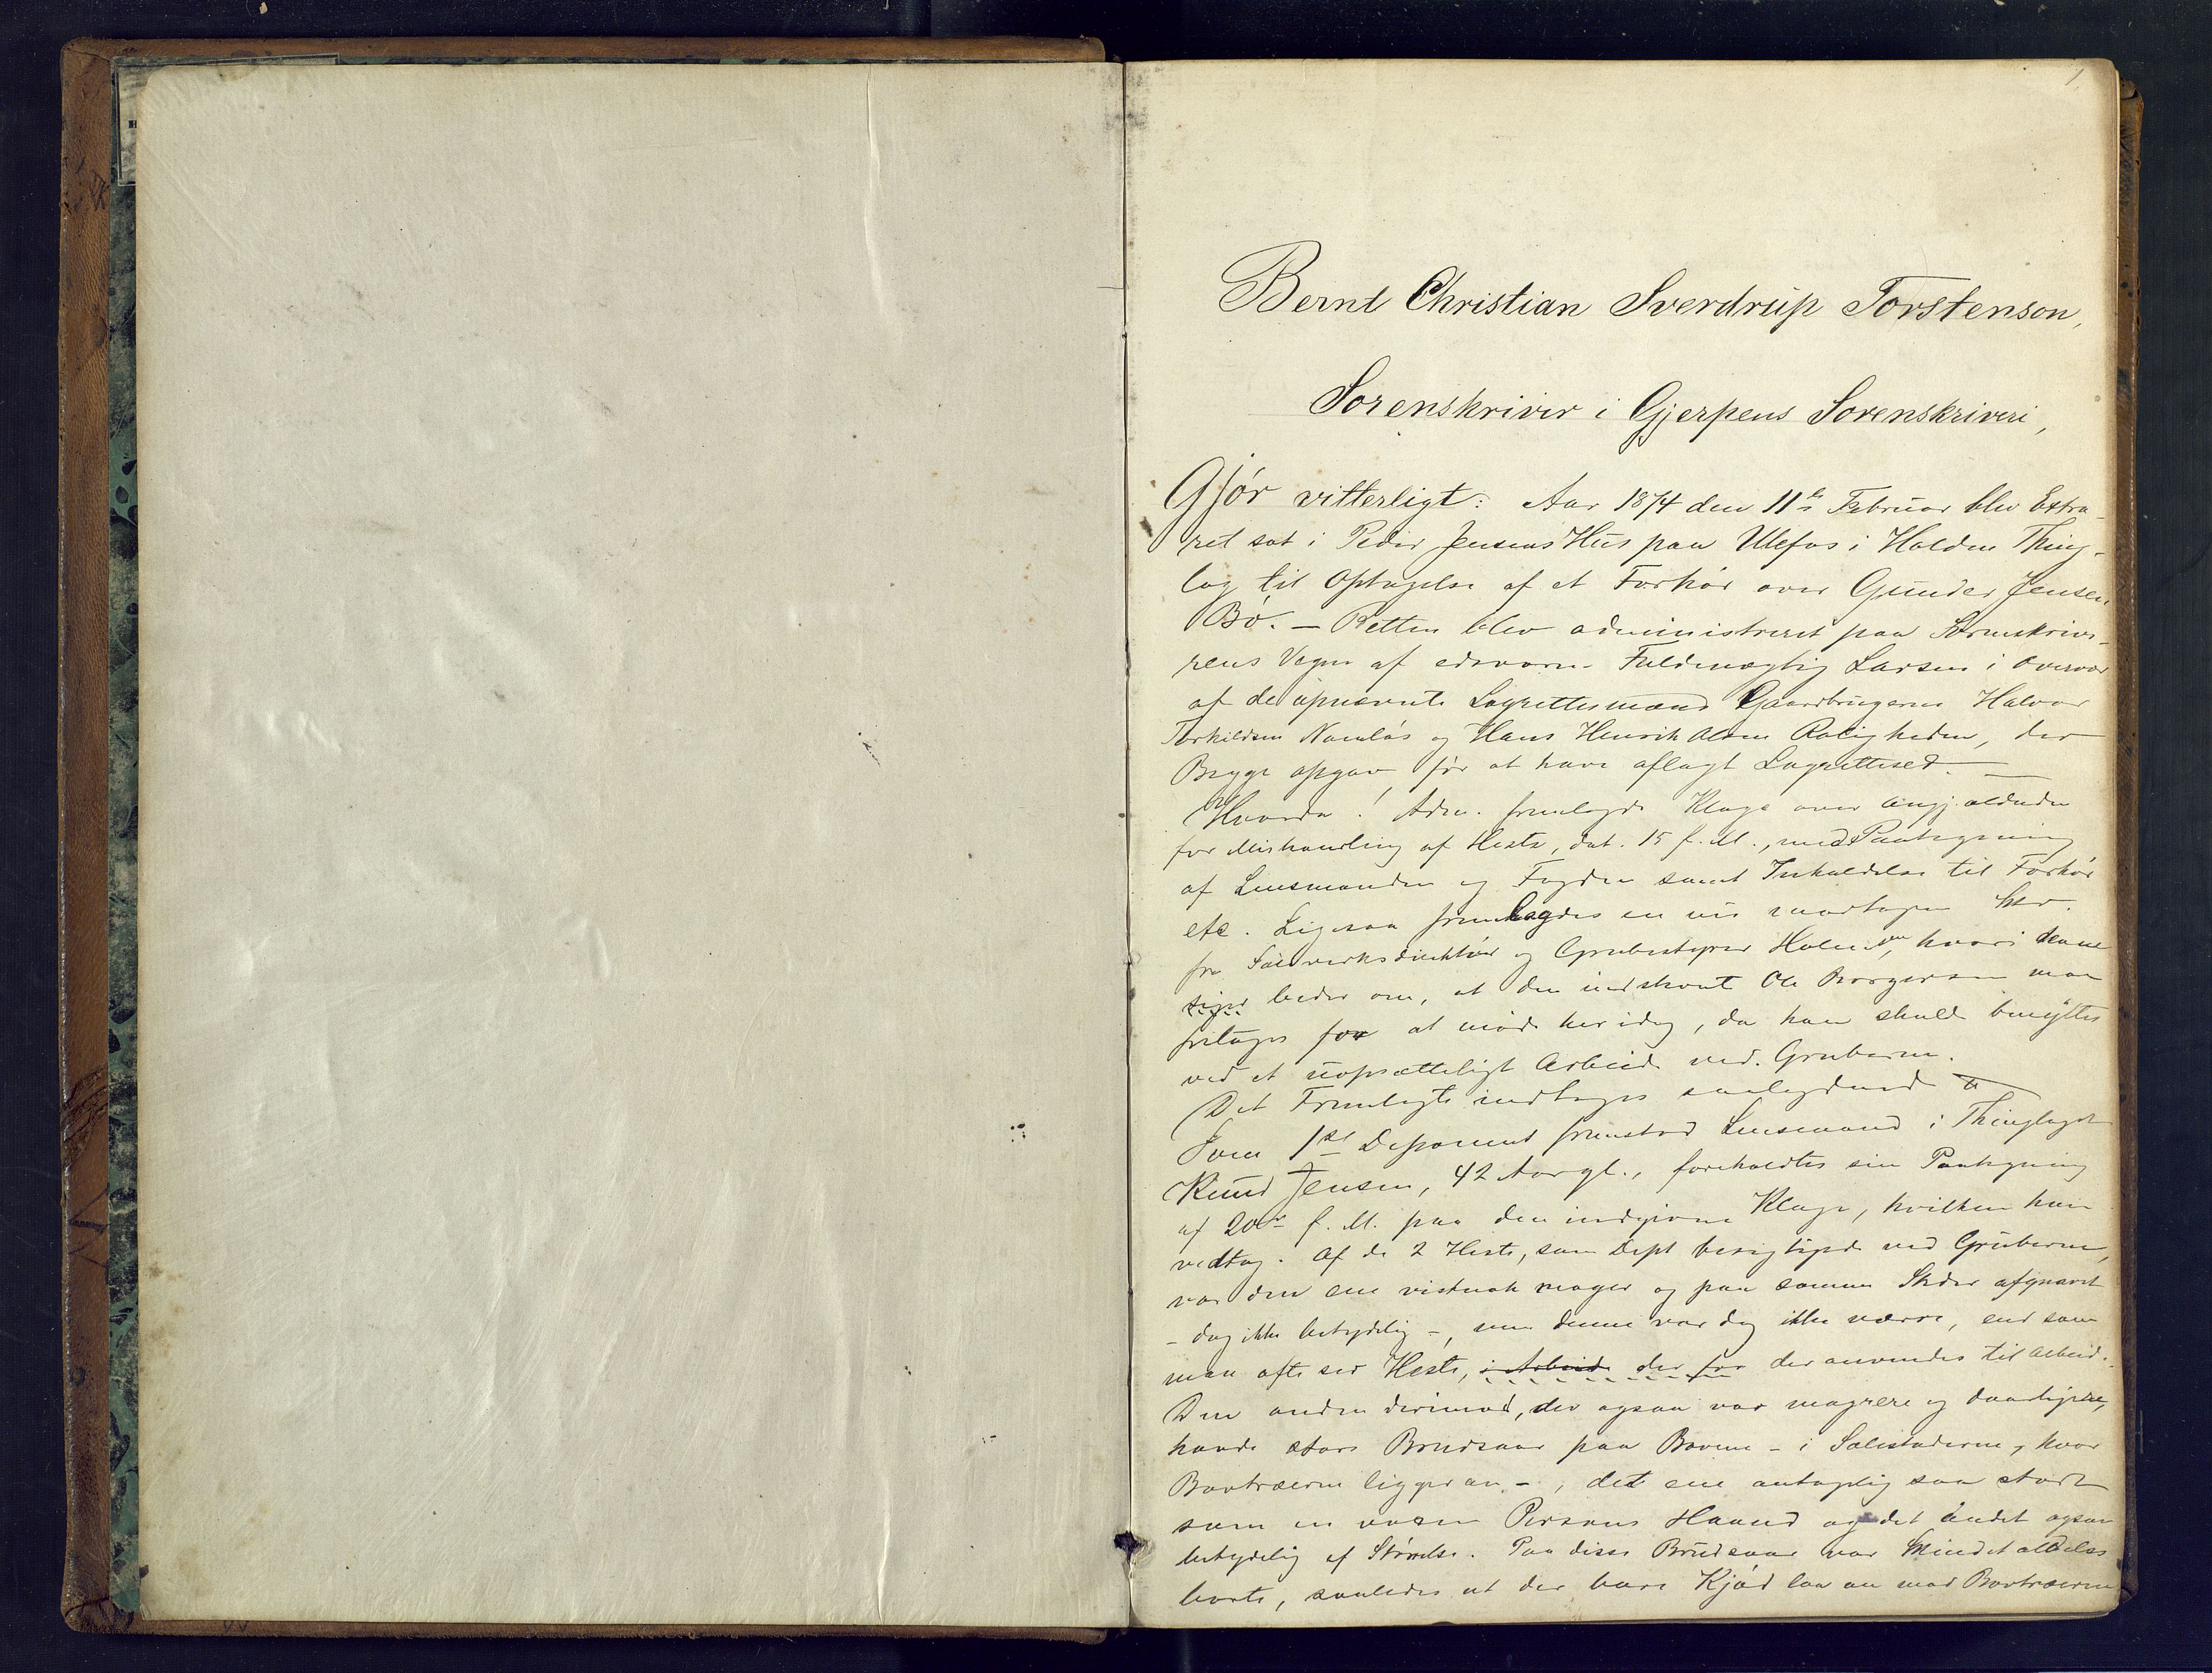 1
Bernt Christian Sverdrup Torstenson,
Sorenskriver i Gjerpens Sorenskriveri,
Gjör vitterligt: Aar 1874 den 11te Februar blev Extra-
ret sat i Peder Jensens Hus paa Ulefos i Holden Thing-
lag til Optagelse af et Forhör over Gunder Jensen
Bö. – Retten blev administreret paa Sorenskrive-
rens Vegne af edsvorne Fuldmægtig Larsen i Overvær
af de opnævnte Lagrettesmænd Gaardbrugerne Halvor
Torkildsen Namlös og Hans Henrik Olsen Roligheden, der
Begge opgav för at have aflagt Lagrettesed. —
Hvorda! Adm. fremlagde Klage over Angjældende
for Mishandling af Heste, dat. 15 f. M., med Paategning
af Lensmanden og Fogden samt Indkaldelse til Forhör
etc. Ligesaa fremlagdes en nu modtagen Skr.
fra Sölvverksdirektör og Grubestyrer Holm, hvori denne
siger beder om, at den indstevnte Ole Borgersen maa
fritages for at möde her idag, da han skulde benyttes
ved et uopsætteligt Arbeide ved Gruberne.
Det Fremlagte indtages saalydende
Som 1ste Deponent fremstod Lensmand i Thinglaget
Knud Jensen, 42 Aar gl., foreholdtes sin Paategning
af 20de f. M. paa den indgivne Klage, hvilken han
vedtog. Af de 2 Heste, som Dept besigtigede ved Gruberne,
var den ene vistnok mager og paa somme Steder afgnavet
– dog ikke betydelig –, men denne var dog ikke værre, end som
man ofte ser Heste, i Arbeide der for der anvendes til Arbeid.
Den anden derimod, der ogsaa var magrere og daarligere,
havde store Brudsaar paa Bovene – i Selestederne, hvor
Bovtræerne ligger an –, det ene antagelig saa stort
som en voxen Persons Haand og det andet ogsaa
betydelig af Störrelse. Paa disse Brudsaar var Skindet aldeles
borte, saaledes at der bare Kjöd laa an mod Bovtræerne